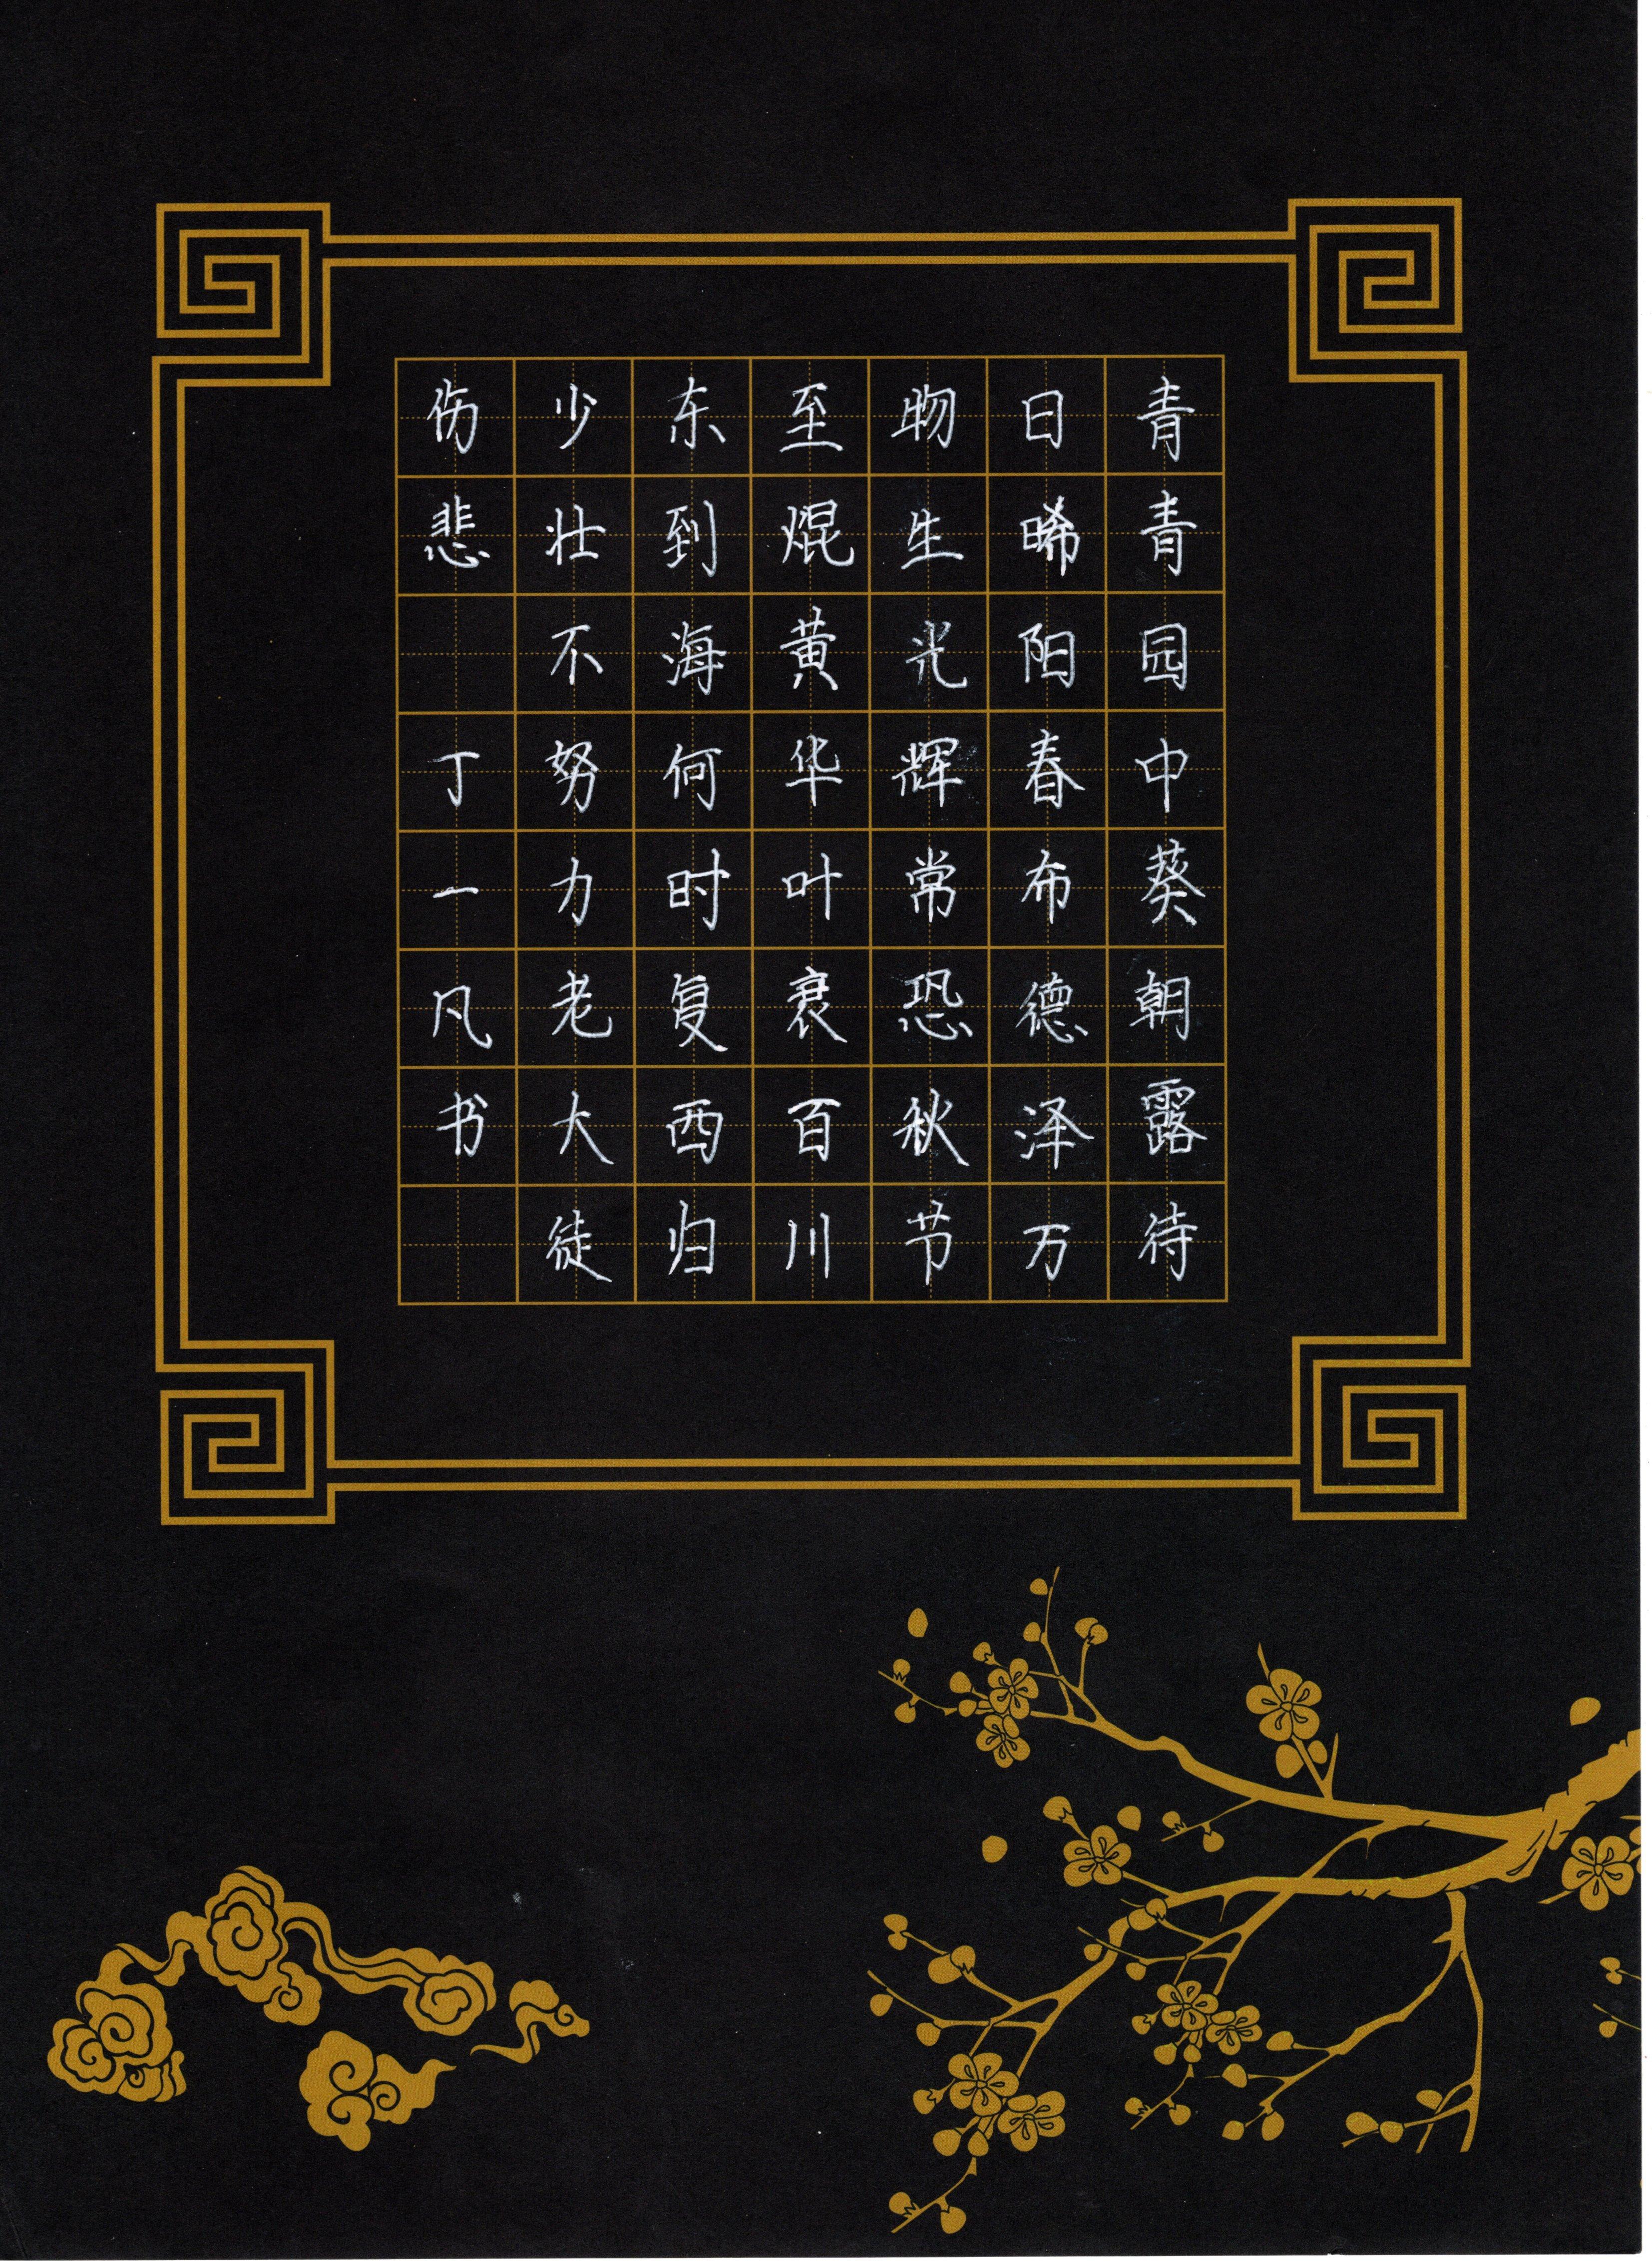 青青园中葵朝露待
日晞阳春布德泽万
物生光辉常恐秋节
至焜黄华叶衰百川
东到海何时复西归
少壮不努力老大徒
伤悲 丁一凡书